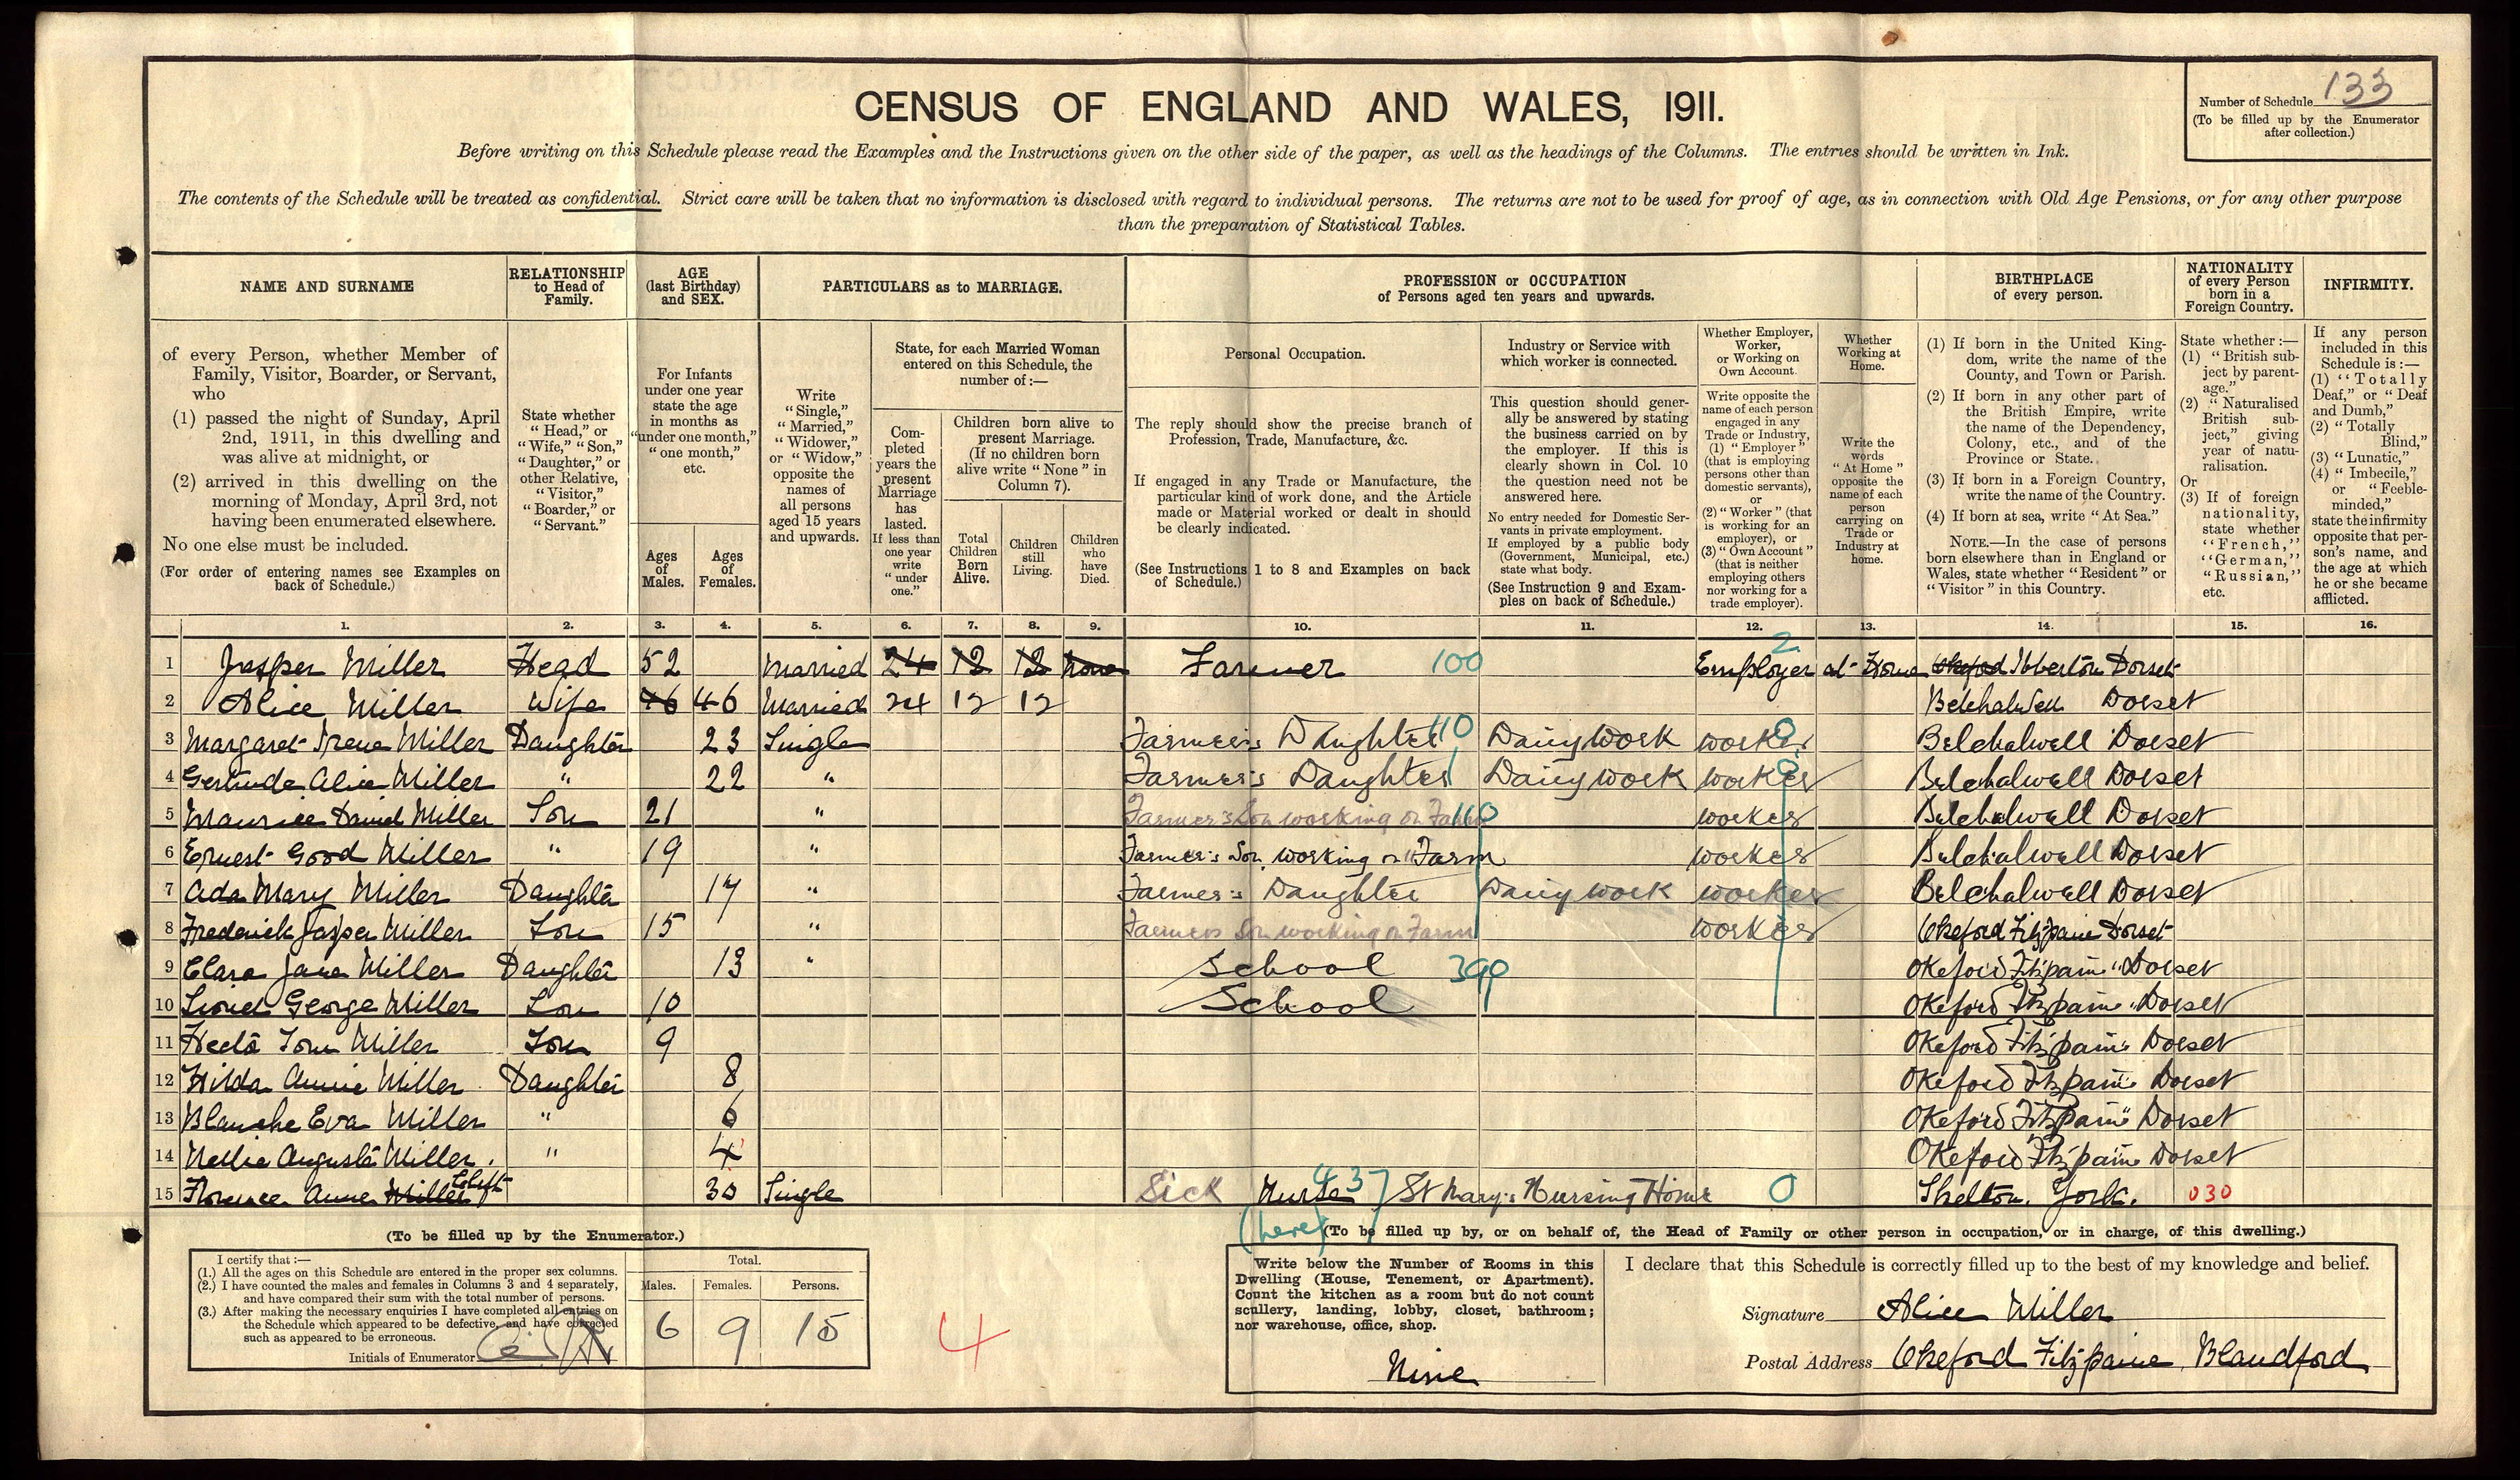 CENSUS OF ENGLAND AND WALES, 1911.
Number of Schedule 133
(To be filled up by the Enumerator
after collection.)
Before writing on this Schedule please read the Examples and the Instructions given on the other side of the paper, as well as the headings of the Columns. The entries should be written in Ink.
The contents of the Schedule will be treated as confidential. Strict care will be taken that no information is disclosed with regard to individual persons. The returns are not to be used for proof of age, as in connection with Old Age Pensions, or for any other purpose
than the preparation of Statistical Tables.
NAME AND SURNAME
RELATIONSHIP
to Head of
Family.
AGE
(last Birthday)
and SEX.
PARTICULARS as to MARRIAGE.
PROFESSION or OCCUPATION
of Persons aged ten years and upwards.
BIRTHPLACE
of every person.
NATIONALITY
of every Person
born in a
Foreign Country.
INFIRMITY.
of every Person, whether Member of
Family, Visitor, Boarder, or Servant,
who
(1) passed the night of Sunday, April
2nd, 1911, in this dwelling and
was alive at midnight, or
(2) arrived in this dwelling on the
morning of Monday, April 3rd, not
having been enumerated elsewhere.
No one else must be included.
(For order of entering names see Examples on
back of Schedule.)
State whether
"Head," or
"Wife," "Son,"
"Daughter," or
other Relative,
"Visitor,"
"Boarder," or
"Servant."
For Infants
under one year
state the age
in months as
"under one month,"
"one month,"
etc.
Ages
of
Males.
Ages
of
Females.
Write
"Single,"
"Married,"
"Widower,"
or "Widow,"
opposite the
names of
all persons
aged 15 years
and upwards.
State, for each Married Woman
entered on this Schedule, the
number of:—
Com-
pleted
years the
present
Marriage
has
lasted.
If less than
one year
write
"under
one."
Children born alive to
present Marriage.
(If no children born
alive write "None" in
Column 7).
Total
Children
Born
Alive.
Children
still
Living.
Children
who
have
Died.
Personal Occupation.
The reply should show the precise branch of
Profession, Trade, Manufacture, &c.
If engaged in any Trade or Manufacture, the
particular kind of work done, and the Article
made or Material worked or dealt in should
be clearly indicated.
(See Instructions 1 to 8 and Examples on back
of Schedule.)
Industry or Service with
which worker is connected.
This question should gener-
ally be answered by stating
the business carried on by
the employer. If this is
clearly shown in Col. 10
the question need not be
answered here.
No entry needed for Domestic Ser-
vants in private employment.
If employed by a public body
(Government, Municipal, etc.)
state what body.
(See Instruction 9 and Exam-
ples on back of Schedule.)
Whether Employer,
Worker,
or Working on
Own Account.
Write opposite the
name of each person
engaged in any
Trade or Industry,
(1) "Employer"
(that is employing
persons other than
domestic servants),
or
(2) "Worker" (that
is working for an
employer), or
(3) "Own Account"
(that is neither
employing others
nor working for a
trade employer).
Whether
Working at
Home.
Write the
words
"At Home"
opposite the
name of each
person
carrying on
Trade or
Industry at
home.
(1) If born in the United King-
dom, write the name of the
County, and Town or Parish.
(2) If born in any other part of
the British Empire, write
the name of the Dependency,
Colony, etc., and of the
Province or State.
(3) If born in a Foreign Country,
write the name of the Country.
(4) If born at sea, write "At Sea."
NOTE.—In the case of persons
born elsewhere than in England or
Wales, state whether "Resident" or
"Visitor" in this Country.
State whether:—
(1) "British sub-
ject by parent-
age."
(2) "Naturalised
British sub-
ject," giving
year of natu-
ralisation.
Or
(3) If of foreign
nationality,
state whether
"French,"
"German,"
"Russian,"
etc.
If any person
included in this
Schedule is:—
(1) "Totally
Deaf," or "Deaf
and Dumb,"
(2) "Totally
Blind,"
(3) "Lunatic,"
(4) "Imbecile,"
or "Feeble-
minded,"
state the infirmity
opposite that per-
son's name, and
the age at which
he or she became
afflicted.
1. 2. 3. 4. 5. 6. 7. 8. 9. 10. 11. 12. 13. 14. 15. 16.
1 Jasper Miller Head 52 Married 24 12 12 none Farmer 100 Employer 2 at Home Okeford Ibberton Dorset
2 Alice Miller Wife 46 46 Married 24 12 12 Belchalwell Dorset
3 Margaret Irene Miller Daughter 23 Single Farmer's Daughter 110 Dairy Work worker 0 Belchalwell Dorset
4 Gertrude Alice Miller " 22 " Farmer's Daughter Dairy Work worker 0 Belchalwell Dorset
5 Maurice Daniel Miller Son 21 " Farmer's Son working on Farm 110 worker Belchalwell Dorset
6 Ernest Good Miller " 19 " Farmer's Son working on Farm worker Belchalwell Dorset
7 Ada Mary Miller Daughter 17 " Farmer's Daughter Dairy Work worker Belchalwell Dorset
8 Frederick Jasper Miller Son 15 " Farmers Son working on Farm worker Okeford Fitzpaine Dorset
9 Clara Jane Miller Daughter 13 " School 390 Okeford Fitzpaine Dorset
10 Lionel George Miller Son 10 School Okeford Fitzpaine Dorset
11 Tom Miller Son 9 Okeford Fitzpaine Dorset
12 Hilda Annie Miller Daughter 8 Okeford Fitzpaine Dorset
13 Blanche Eva Miller " 6 Okeford Fitzpaine Dorset
14 Nellie Augusta Miller " 4 Okeford Fitzpaine Dorset
15 Florence Anne Miller Clift 30 Single Sick Nurse 437 St Mary's Nursing Home 0 Skelton. York. 030
(here)
(To be filled up by the Enumerator.)
I certify that:—
(1.) All the ages on this Schedule are entered in the proper sex columns.
(2.) I have counted the males and females in Columns 3 and 4 separately,
and have compared their sum with the total number of persons.
(3.) After making the necessary enquiries I have completed all entries on
the Schedule which appeared to be defective, and have corrected
such as appeared to be erroneous.
Initials of Enumerator
Total.
Males. Females. Persons.
6 9 15
4
(To be filled up by, or on behalf of, the Head of Family or other person in occupation, or in charge, of this dwelling.)
Write below the Number of Rooms in this
Dwelling (House, Tenement, or Apartment).
Count the kitchen as a room but do not count
scullery, landing, lobby, closet, bathroom;
nor warehouse, office, shop.
Nine
I declare that this Schedule is correctly filled up to the best of my knowledge and belief.
Signature Alice Miller
Postal Address Okeford Fitzpaine Blandford